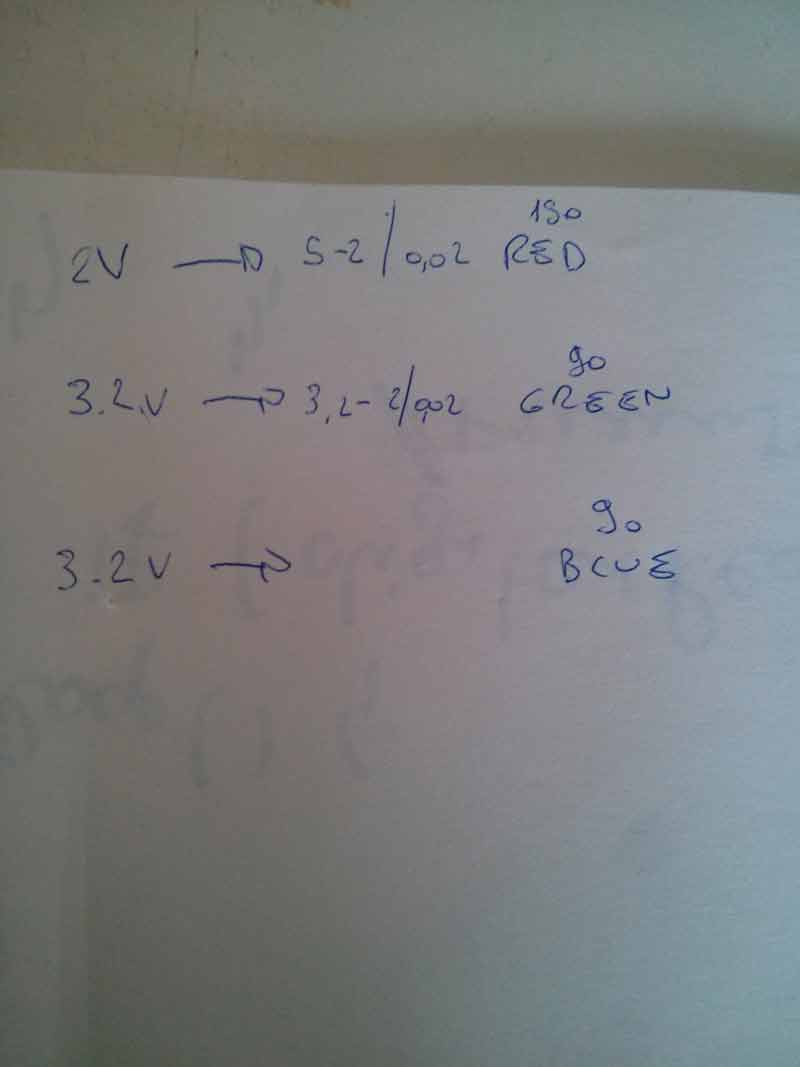 150
2V → 5-2/0,02 RED
90
3.2.V → 3,2-2/0,02 GREEN
90
3.2V → BLUE